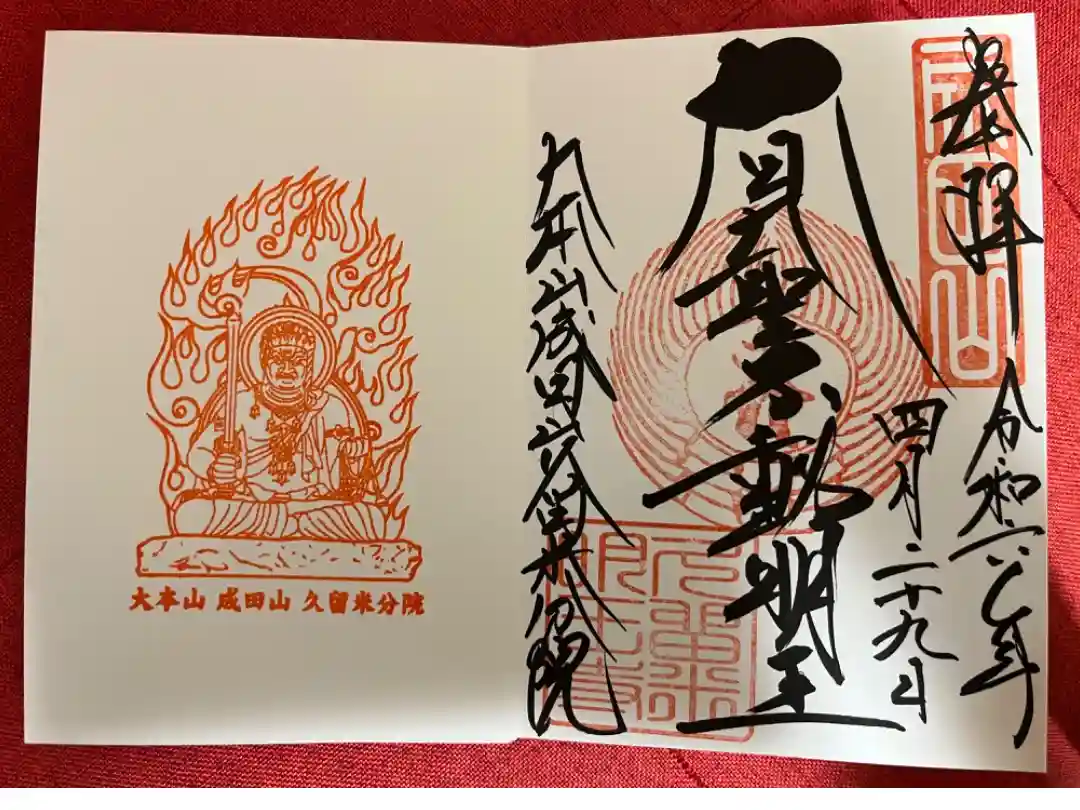 奉拝 令和六年
成田山
四月二十九日
大聖不動明王
大本山成田山久留米分院
大本山 成田山 久留米分院